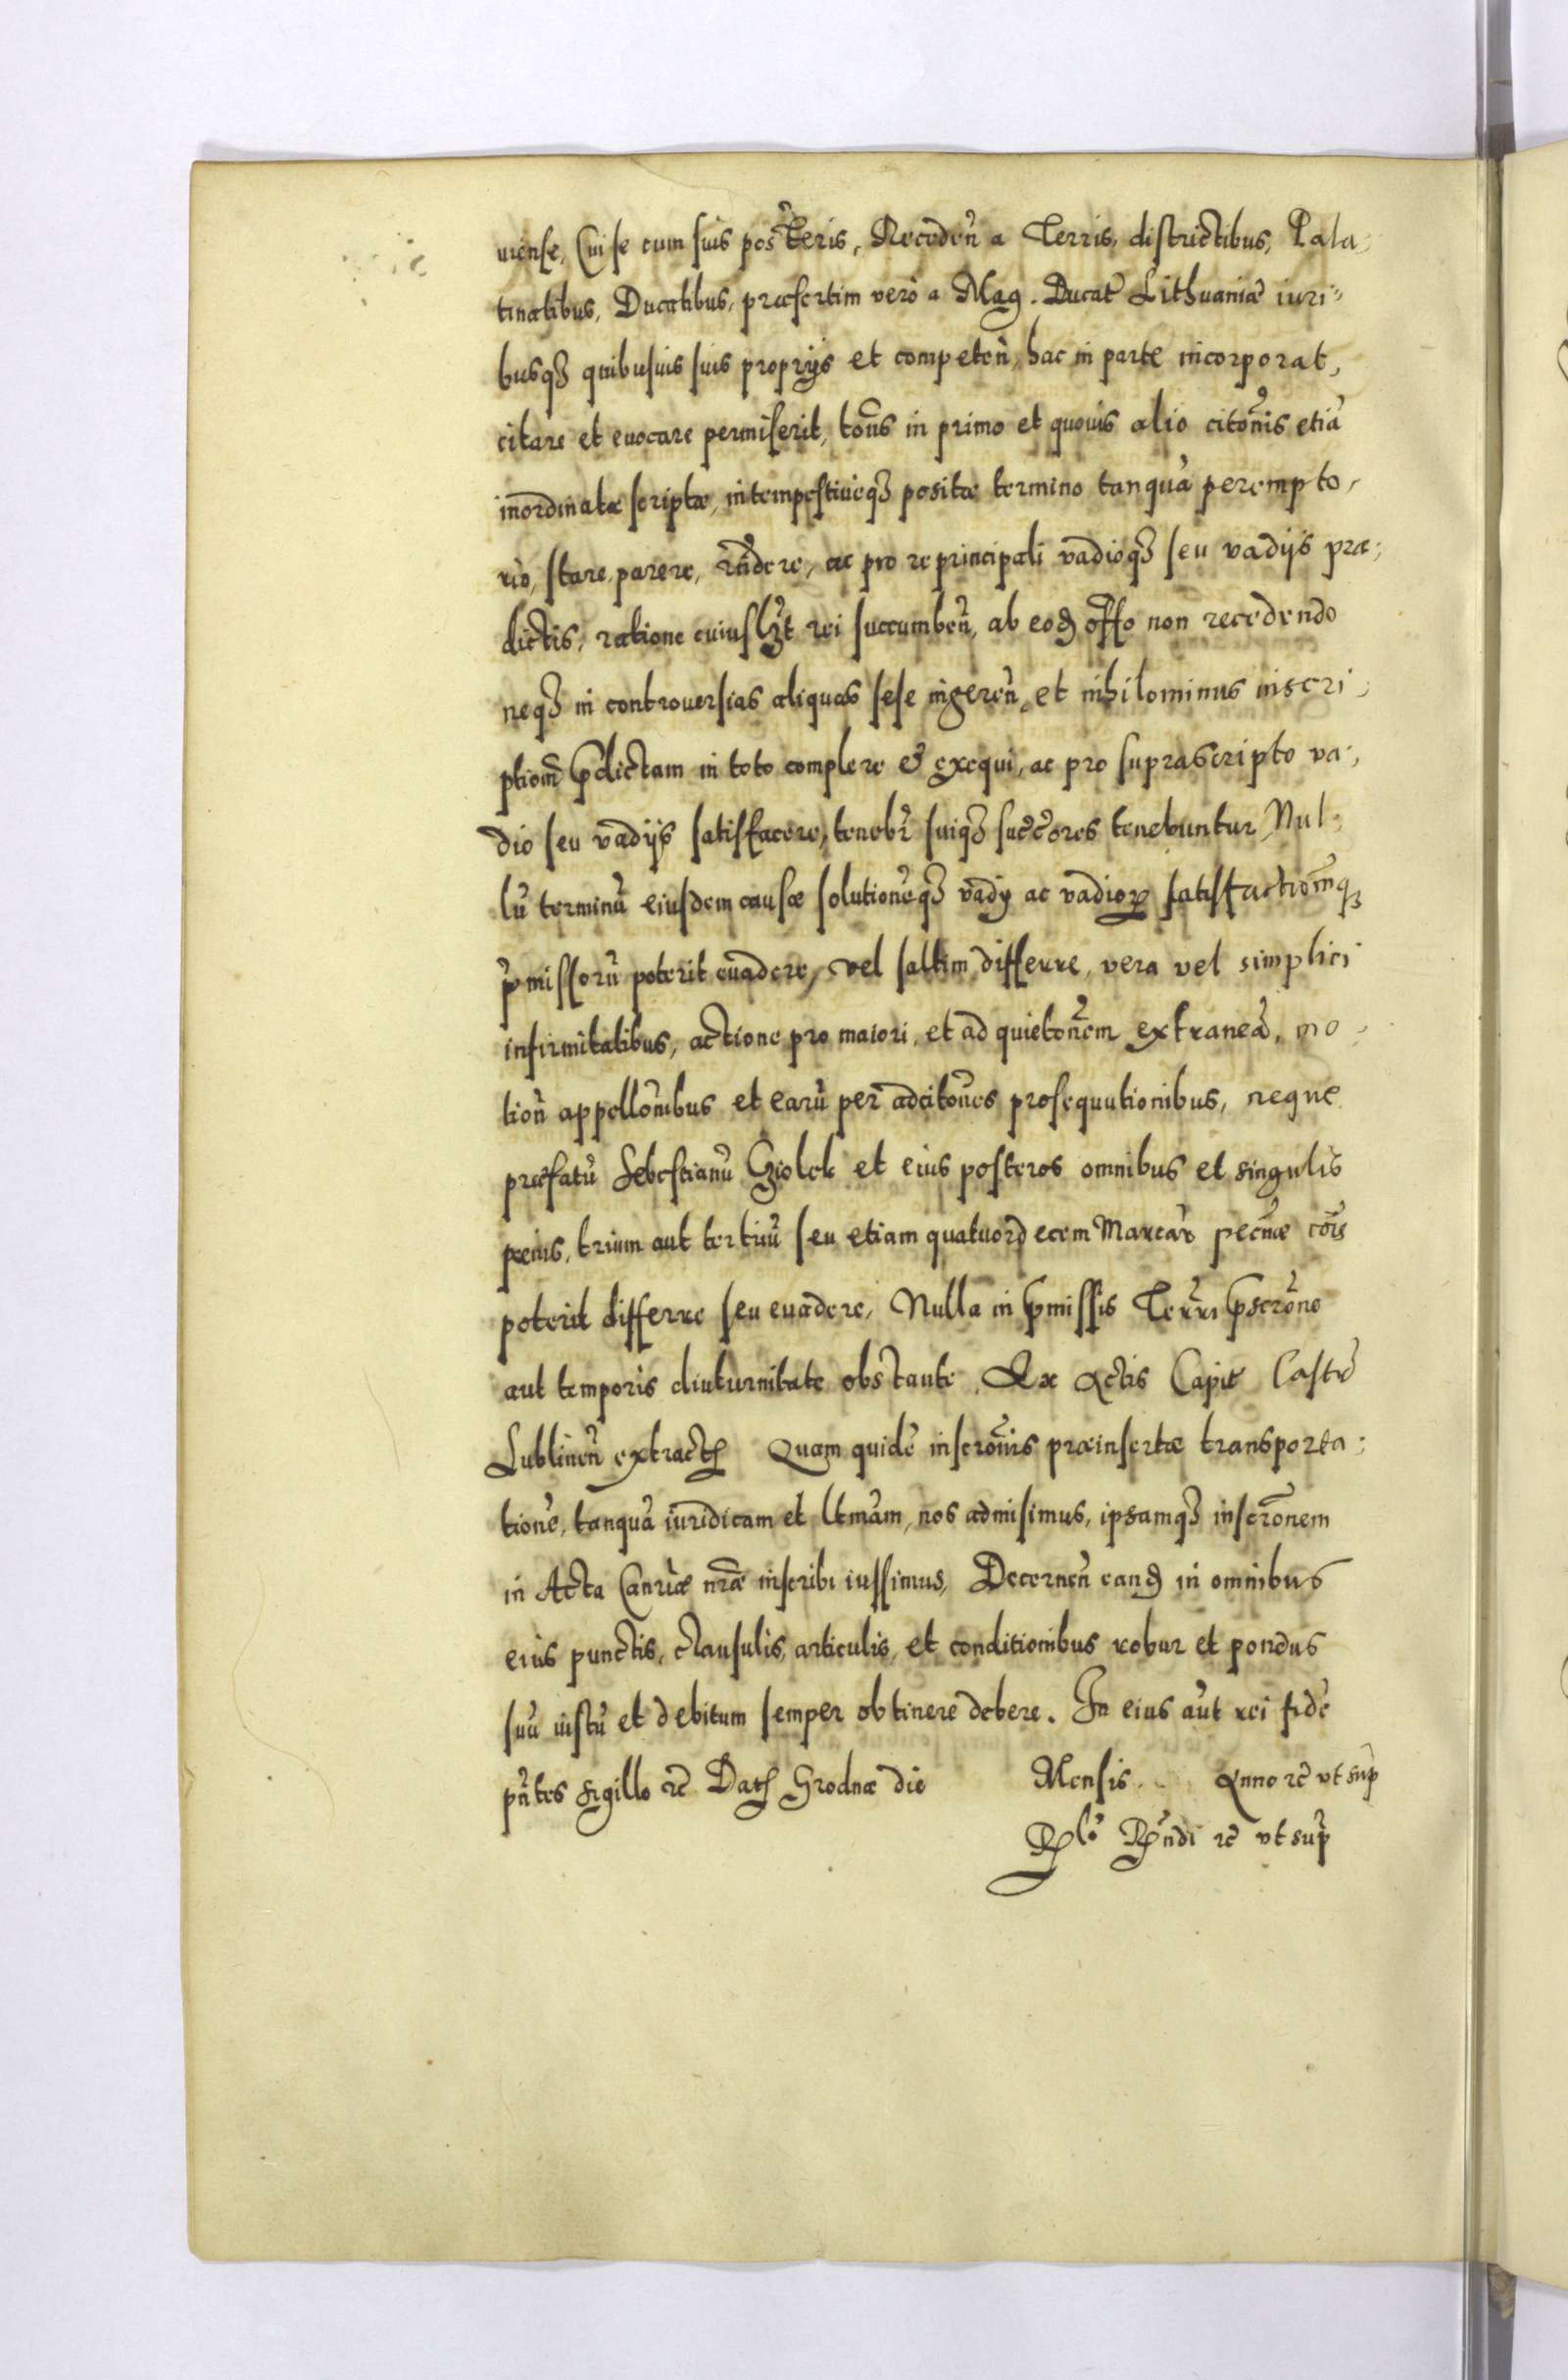 uiense, Cui se cum suis posteris, Recedeñ a Terris, districtibus, Pala,
tinatibus, Ducatibus, præsertim verò a Mag. Ducat̃ Lithuaniæ iuri„
busqꝫ quibusuis suis proprijs et competeñ, hac in parte incorporat,
citare et euocare permiserit, to͂ns in primo et quouis alio cito͂nis etiã
inordinatæ scriptæ, intempestiueqꝫ positæ termino tanquã perempto,
rio, stare, parere, rñdere, ac pro re principali vadioqꝫ seu vadijs præ,
dictis, ratione cuiuslꝫt rei succumbeñ, ab eod offo non recedendo
neqꝫ in controuersias aliquas sese ingereñ, et nihilominus inscri,
ptiom̃ p̃dictam in toto complere & exequi, ac pro suprascripto va,
dio seu vadijs satisfacere, tenebr̃ suiqꝫ succ̃ores tenebuntur, Nul,
lũ terminũ eiusdem causæ solutioneqꝫ vadij ac vadioꝝ satisfactiom̃qꝫ
p̃missorũ poterit euadere, vel saltim differre, vera vel simplici
infirmitatibus, actione pro maiori, et ad quieto͂nem extraneã, mo,
tioñ appello͂nibus et earũ per adcito͂nes prosequutionibus, neque
præfatũ Sebestianũ Gziolek et eius posteros omnibus et singulis
pænis, trium aut tertiũ seu etiam quatuordecem Marcar̃ pecũiæ cõis
poterit differre seu euadere, Nulla in p̃missis Terr̃i p̃scro͂ne
aut temporis diuturnitate obstante. Ex Actis Capit̃ Castr̃
Lublineñ extractꝫ Quam quidẽ inscro͂nis præinsertæ transporta,
tionẽ, tanquã iuridicam et ltm̃am, nos admisimus, ipsamqꝫ inscro͂nem
in Acta Canr̃iæ nr̃æ inscribi iussimus, Decerneñ eand in omnibus
eius punctis, clausulis, articulis, et conditionibus robur et pondus
suũ iustũ et debitum semper obtinere debere. In eius aũt rei fidẽ
pñtes sigillo rc̃ Datꝫ Grodnæ die Mensis Anno rc̃ vt sup̃
Rlo Rñdi rc̃ vt sup̃